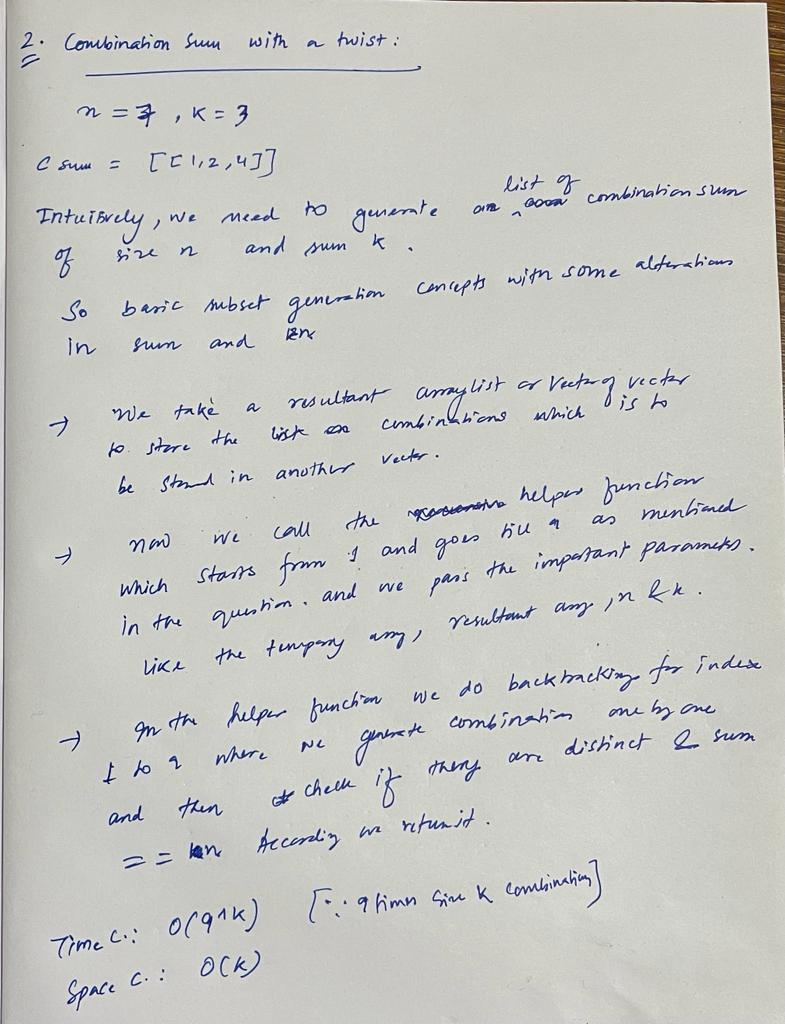 2. Combination Sum with a twist:
n = 7, K = 3
C sum = [[1,2,4]]
Intuitively, we need to generate list of combination sum
of size n and sum k.
So basic subset generation concepts with some alterations
in sum and
→ We take a resultant arraylist or Vector of vector
to store the list combinations which is to
be stored in another vector.
→ now we call the helper function
which starts from 1 and goes till 9 as mentioned
in the question. and we pass the important parameters.
like the tempary arry, resultant arry, n & k.
→ In the helper function we do backtracking for index
1 to 9 where we generate combination one by one
and then check if they are distinct & sum
== n According we return it.
Time C.: O(9^K) [∵ 9 times size K combination]
Space C.: O(K)